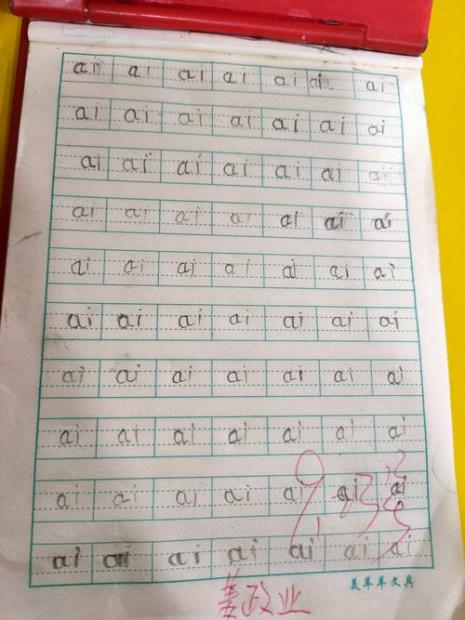 ai ai ai ai ai ai ai
ai ai ai ai ai ai ai
ai ai ai ai ai ai ai
ai ai ai ai ai ai ai
ai ai ai ai ai ai ai
ai ai ai ai ai ai ai
ai ai ai ai ai ai ai
ai ai ai ai ai ai ai
ai ai ai ai ai ai ai
ai ai ai ai ai ai ai
美羊羊文具
姜政业